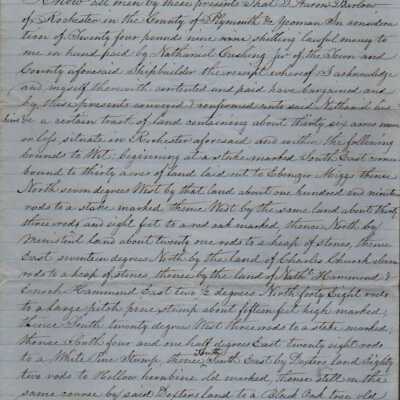 Know all men by these presents that I Aaron Barlow
of Rochester in the County of Plymouth & Yeoman In consideration
of Twenty four pound nine shilling lawful money to
me in hand paid by Nathaniel Cushing jr of the Town and
County aforesaid Shipbuilder the receipt whereof I acknowledge
and myself therewith contented and paid have bargained and
by these presents conveyed & confirmed unto said Nathaniel
a certain tract of land containing about thirty six acres more
or less situate in Rochester aforesaid and within the following
bounds to Wit. beginning at a stake marked South East corner
bound to thirty acres of land laid out to Ebenezer Meiggs thence
North seven degrees West by that land about one hundred and ninete
rods to a stake marked, thence West by the same land about thirty
three rods and eight feet to a red oak marked, thence North by
land about twenty one rods to a heap of stones, thence
East seventeen degrees North by the land of Charles Church eleven
rods to a heap of stones thence by the land of Nathl Hammond &
Enoch Hammond East two ½ degrees North forty Eight rods
to a large pitch pine stump about fifteen feet high marked;
thence South twenty degrees West three rods to a stake marked,
thence South four and one half degrees East twenty eight rods
to a White Pine Stump, thence South East by Dexters land Eighty
two rods to Hollow hornbine old marked thence still on the
same course by said Dexters land to a Black Oak two old